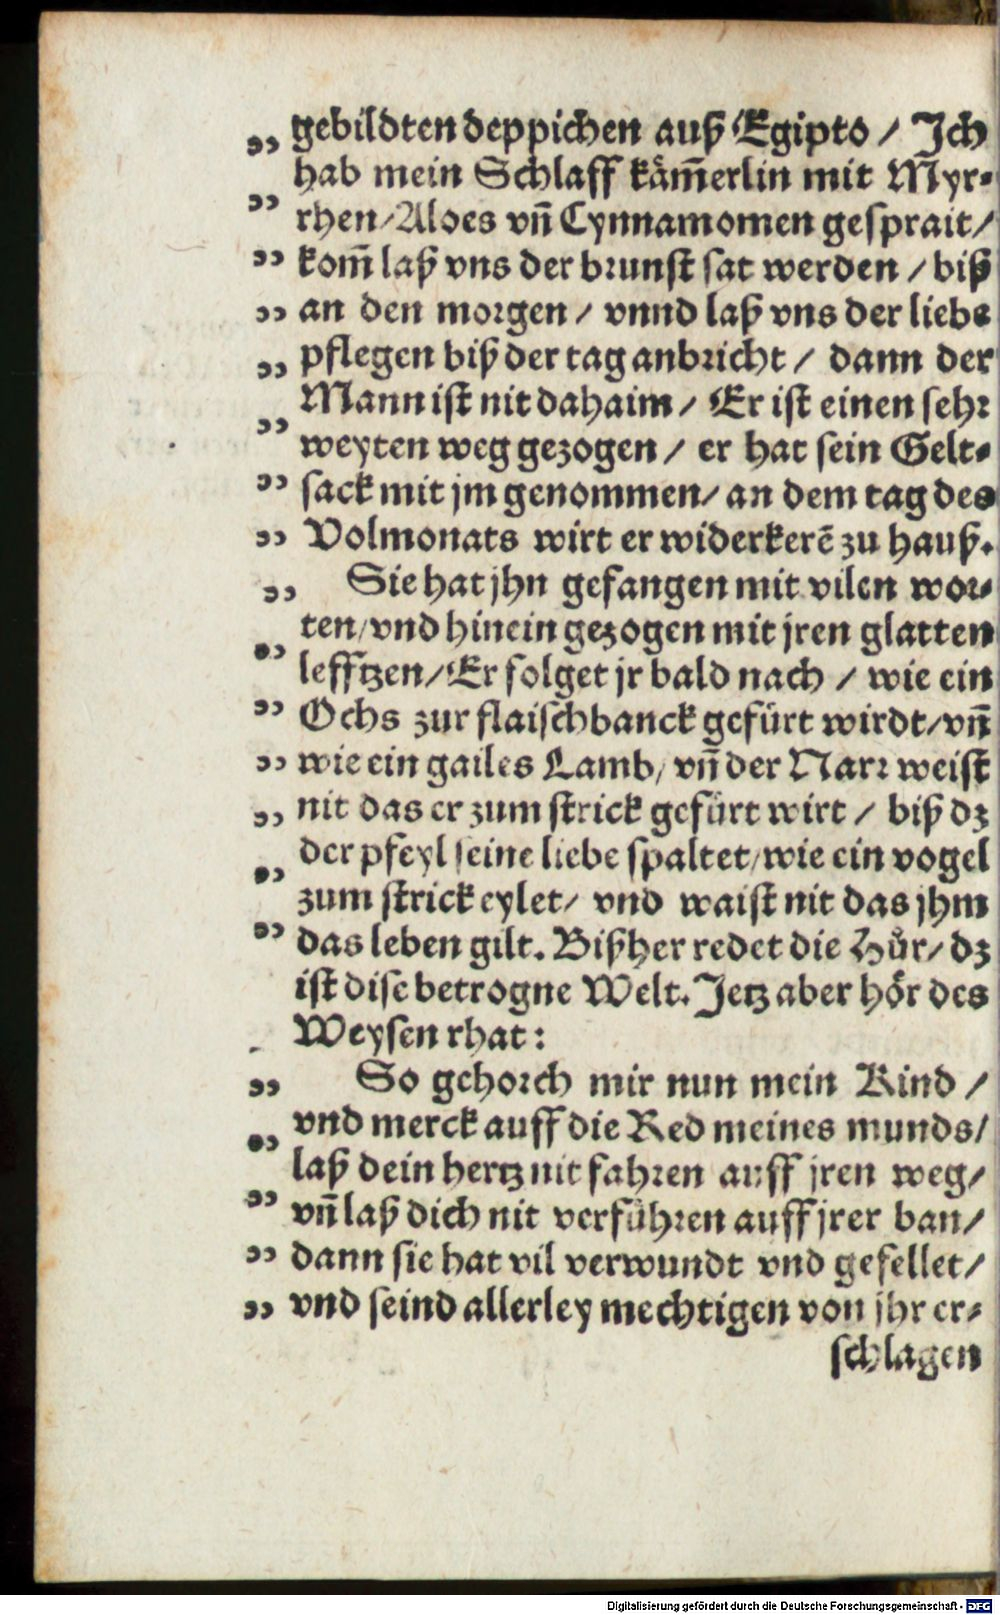 „ gebildten deppichen auß Egipto / Jch
hab mein Schlaff kåm̃erlin mit Myr⸗
„ rhen/Aloes vñ Cynnamomen gesprait/
„ kom̃ laß vns der brunst sat werden / biß
„ an den morgen / vnnd laß vns der liebe
„ pflegen biß der tag anbricht / dann der
Mann ist nit dahaim / Er ist einen sehr
„ weyten weg gezogen / er hat sein Gelt⸗
„ sack mit jm genommen/ an dem tag des
„ Volmonats wirt er widerkerẽ zu hauß.
„ Sie hat jhn gefangen mit vilen wor⸗
ten/vnd hinein gezogen mit jren glatten
„ lefftzen/Er folget jr bald nach / wie ein
„ Ochs zur flaischbanck gefürt wirdt/vñ
„ wie ein gailes Lamb/ vñ der Narr weist
„ nit das er zum strick gefürt wirt / biß dz
der pfeyl seine liebe spaltet/wie ein vogel
„ zum strick eylet/ vnd waist nit das jhm
„ das leben gilt. Bißher redet die Hůr/ dz
ist dise betrogne Welt. Jetz aber hör des
Weysen rhat:
„ So gehorch mir nun mein Kind /
„ vnd merck auff die Red meines munds/
laß dein hertz nit fahren auff jren weg/
„ vñ laß dich nit verführen auff jrer ban/
„ dann sie hat vil verwundt vnd gefellet/
„ vnd seind allerley mechtigen von jhr er⸗
schlagen
Digitalisierung gefördert durch die Deutsche Forschungsgemeinschaft - DFG